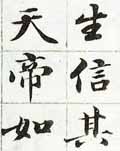 生信其
天帝如